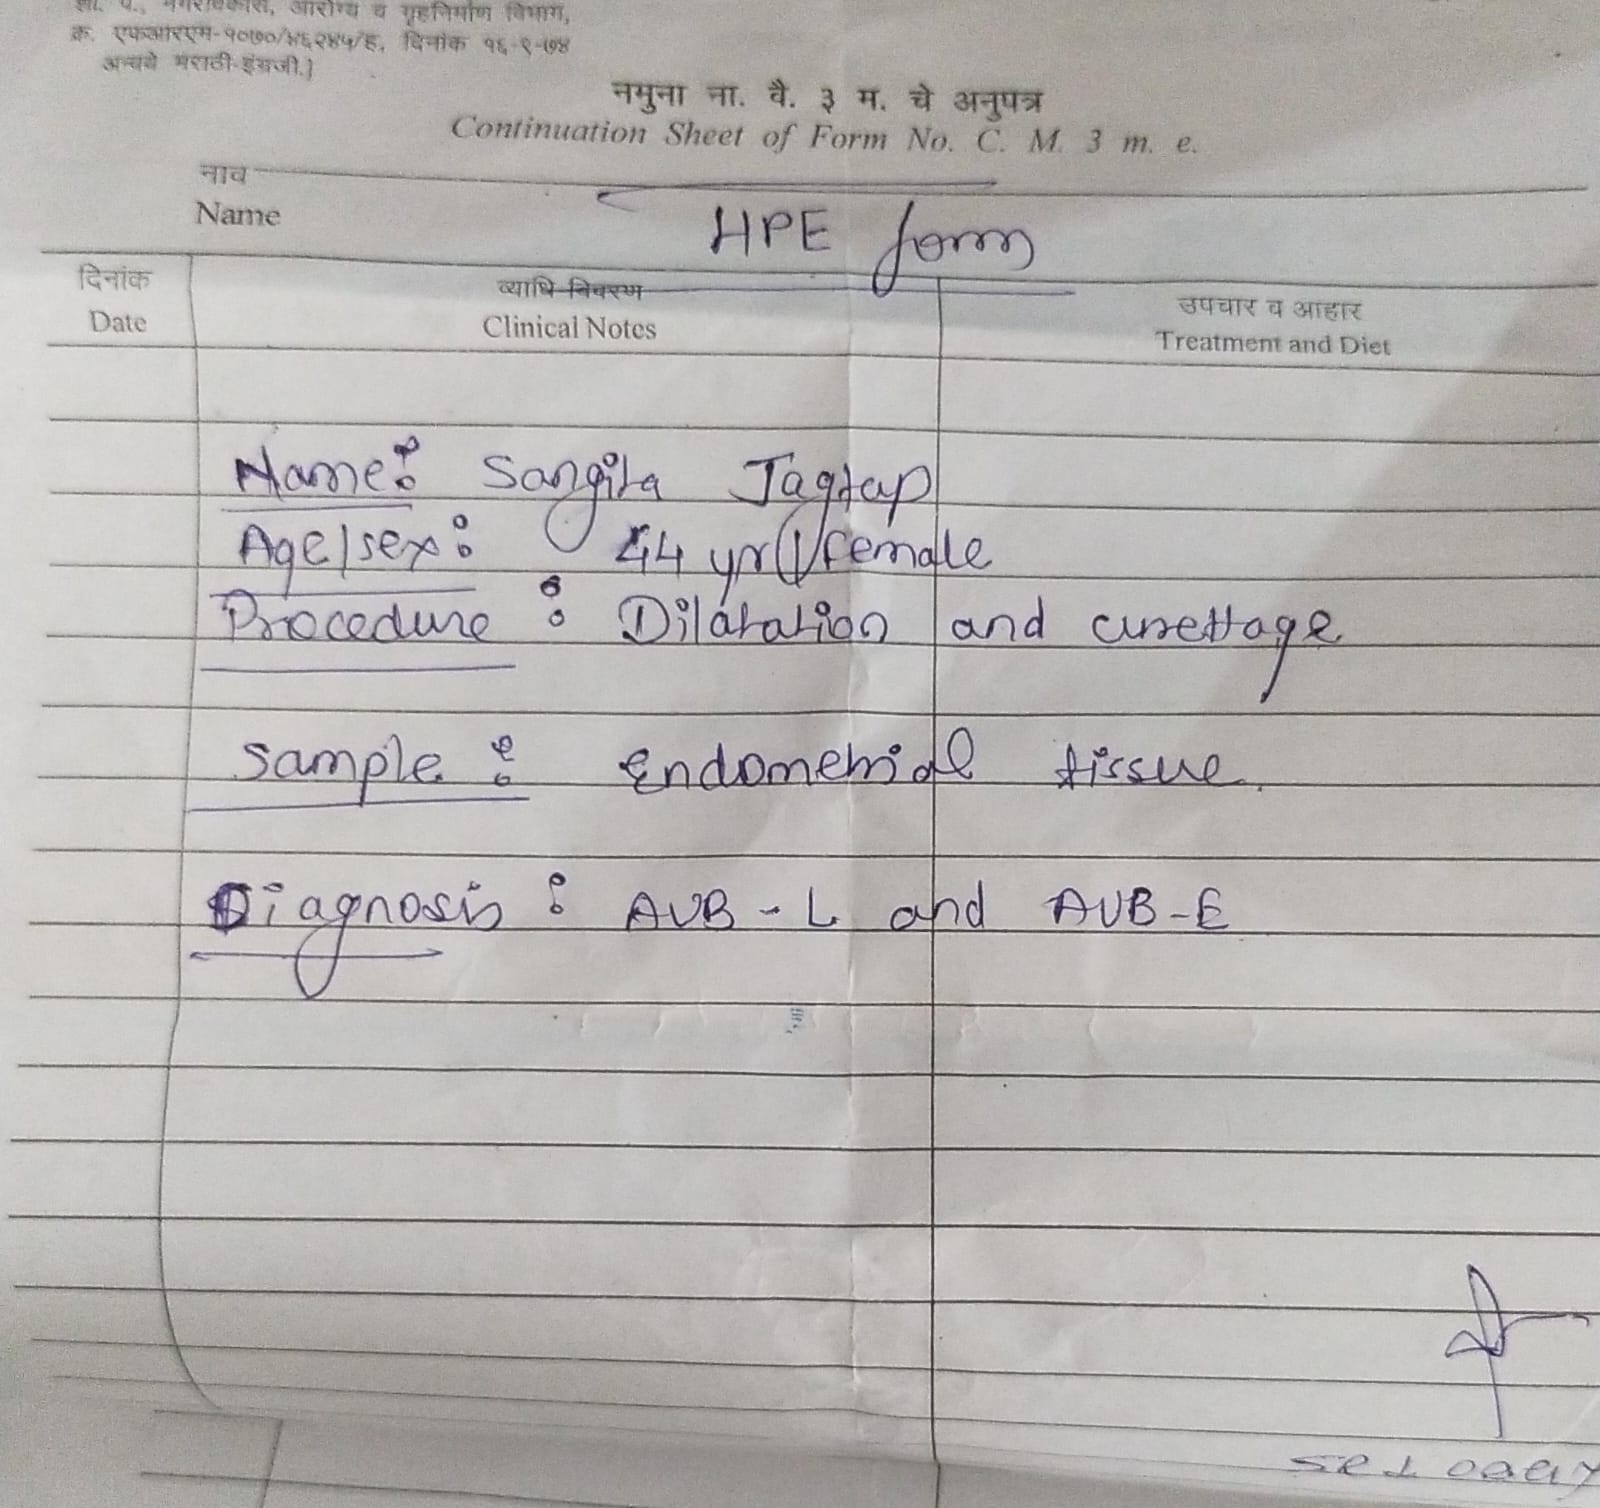 नगरविकास, आरोग्य व गृहनिर्माण विभाग,
क्र. एफआरएम-१०७०/४६२४५/ह, दिनांक १६-९-७४
मराठी-इंग्रजी.]
नमुना ना. वै. ३ म. चे अनुपत्र
Continuation Sheet of Form No. C. M. 3 m. e.
नाव
Name
HPE form
दिनांक
Date
व्याधि विवरण
Clinical Notes
उपचार व आहार
Treatment and Diet
Name: Sangita Jagtap
Age/sex: 44 yr/female
Procedure: Dilatation and curettage
Sample: Endometrial tissue.
Diagnosis: AUB-L and AUB-E